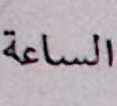 الساعة